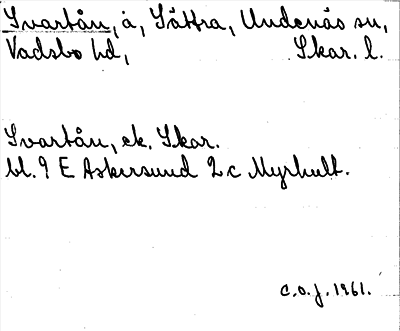 Svartån, å, Sättra, Undenäs sn,
Vadsbo hd, Skar. l.
Svartån, ek. Skar.
bl. 9 E Askersund 2 c Myrhult.
C.O.J. 1961.